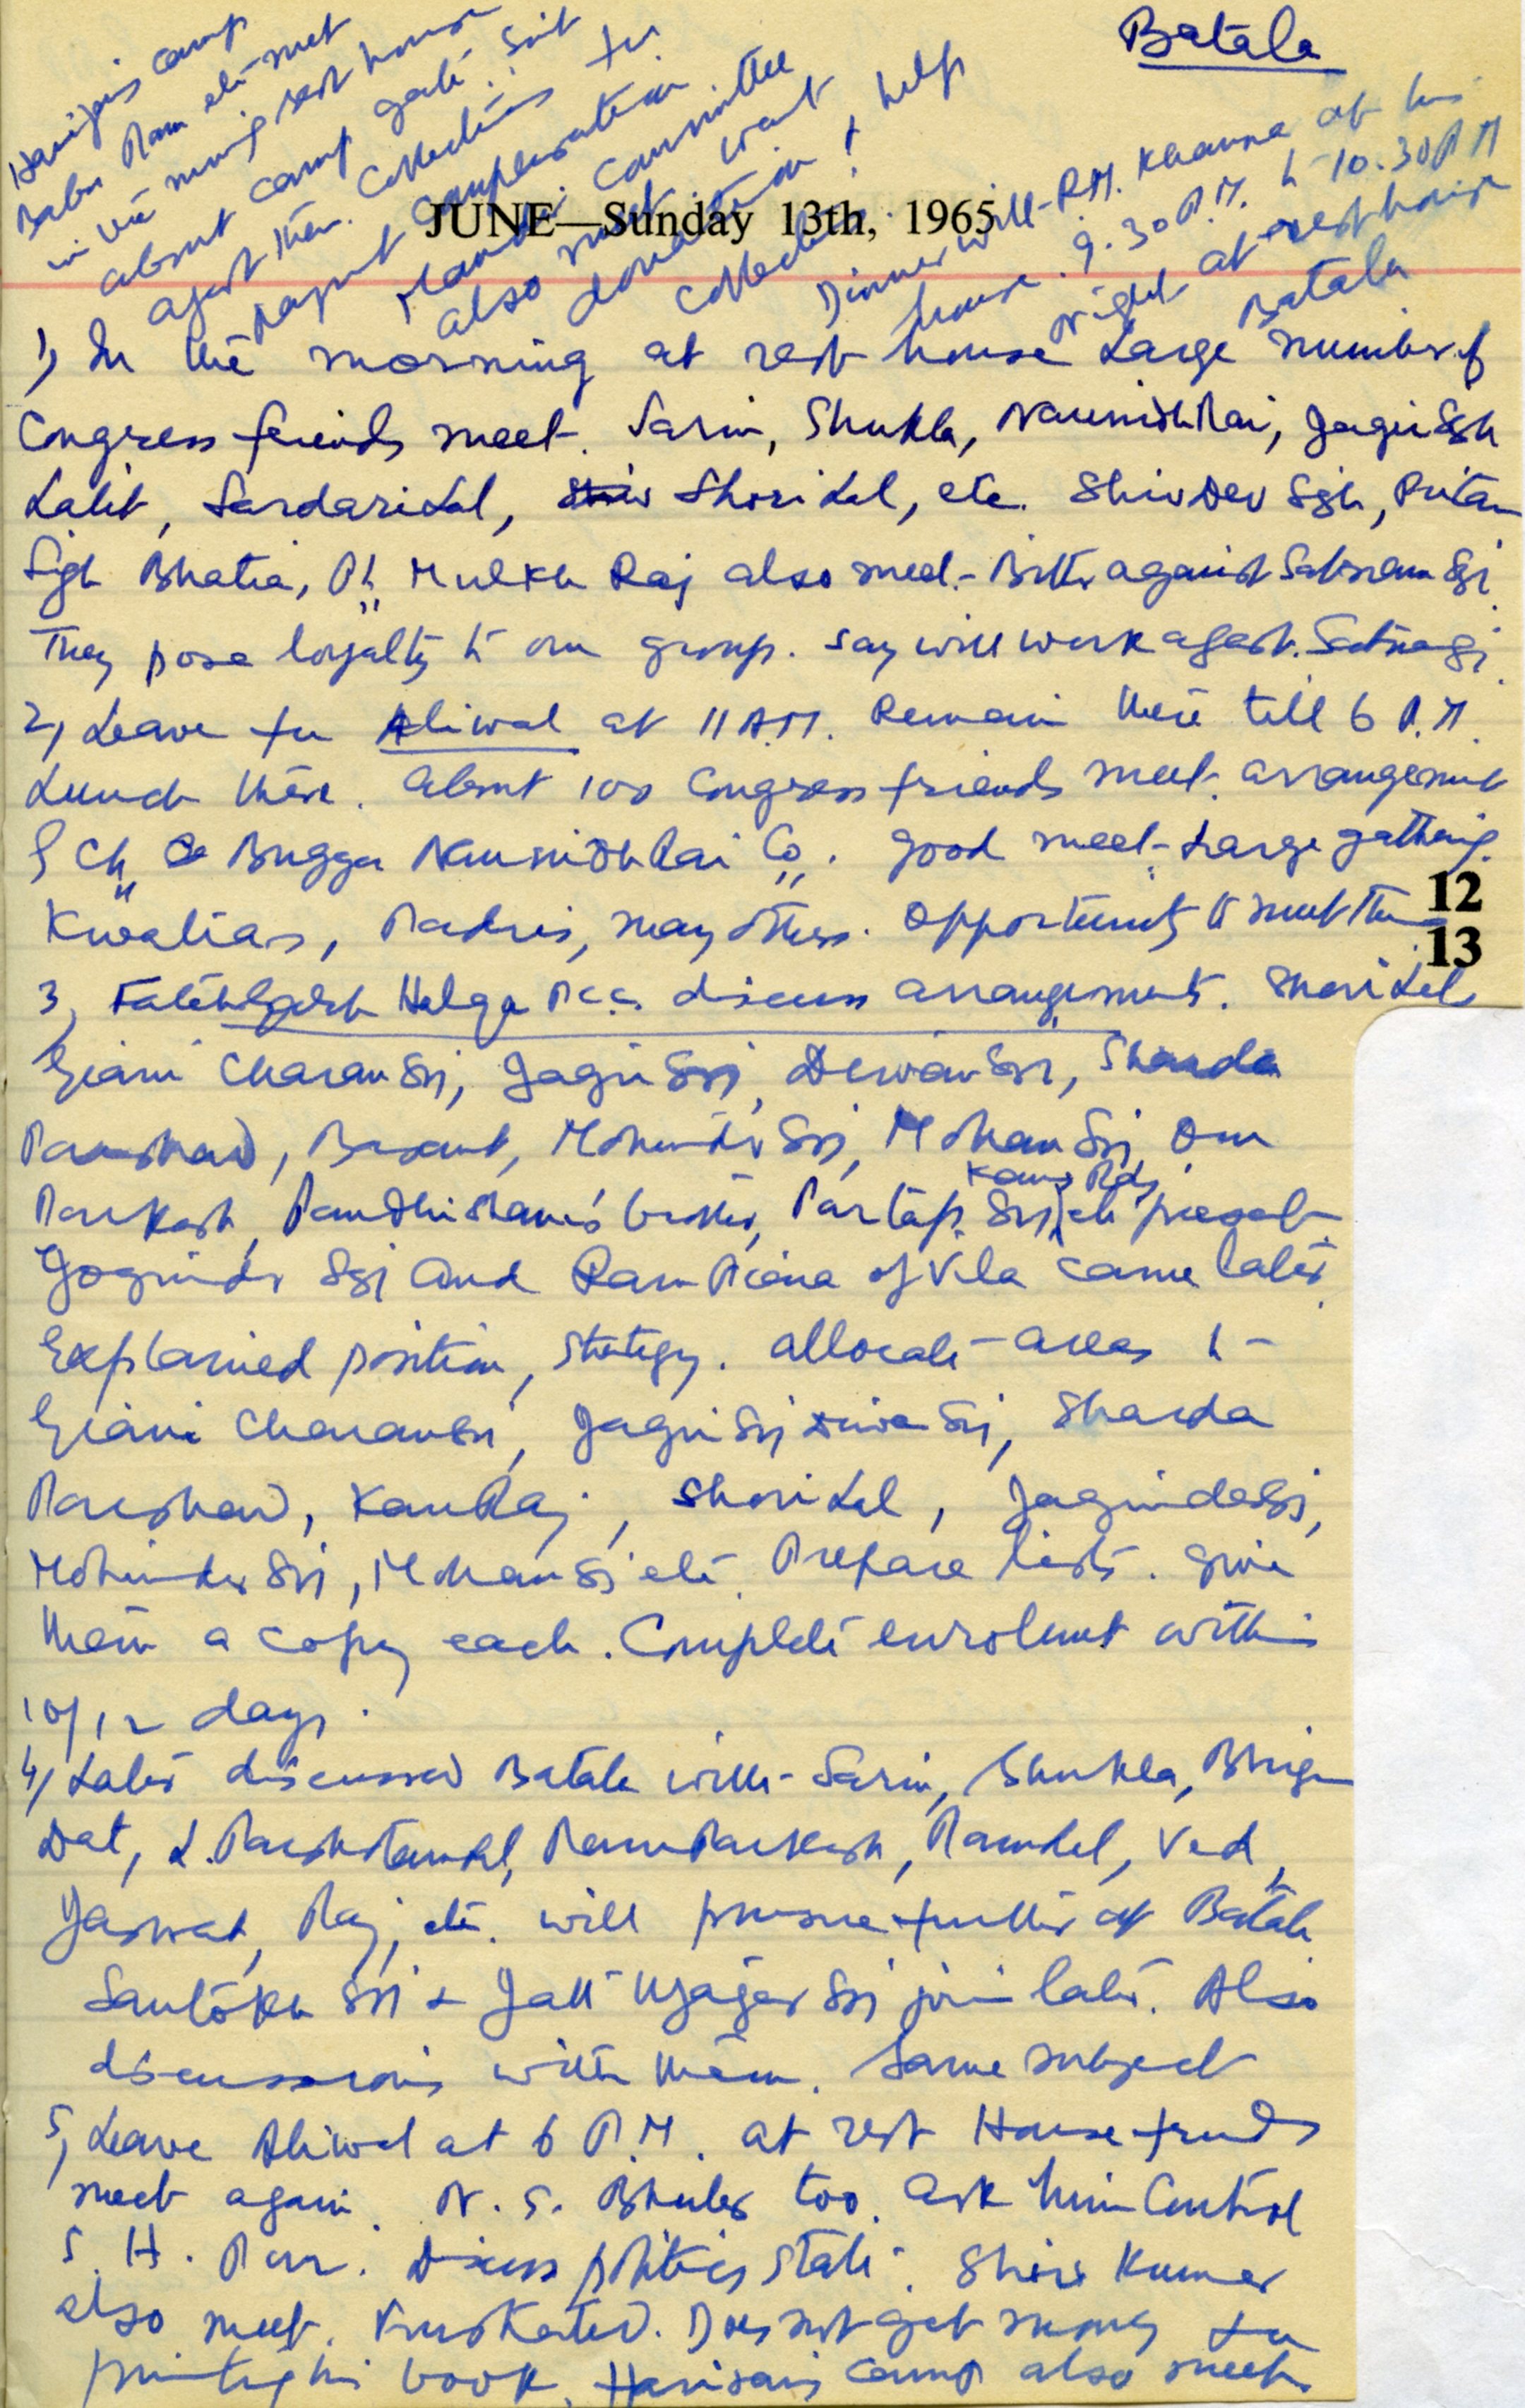 Batala
Harijans camp
Babu Ram etc met
in the morning rest house
about camp gate. Suit
agast them. Collections for
payment compensation
Mandi Committee
also meet want
donation & help
collection.
Dinner with R.M. Khanna at his
house. 9.30 P.M. to 10.30 P.M
Night at rest house
Batala
JUNE—Sunday 13th, 1965
1) In the morning at rest house Large number of
Congress friends meet. Sarin, Shukla, Naunidh Rai, Jagir Sgh
Lalit, Sardari Lal, Shori Lal, etc. Shiv Dev Sgh, Pritam
Sigh Bhatia, Pt. Mulkh Raj also meet - Bitter against Satnam Sgi.
They pose loyalty to our group. say will work agast. Satnam Sgi.
2) Leave for Aliwal at 11 A.M. Remain there till 6 P.M.
Lunch there. About 100 Congress friends meet. arrangement
of Ch Bugga Naunidh Rai Co. Good meet - Large gathering.
Kwalian, Padris, many others. Opportunity to meet them
12
13
3) Fatehgarh Halqa P.C.C. discuss arrangements. Shori Lal
Giani Charan Sgi, Jagir Sgi, Dewan Sgi, Sharda
Parshad, Basant, Mohinder Sgi, Mohan Sgi, Om
Parkash, Pandhi Sham's brother, Partap Sgi, Kans Raj etc present.
Joginder Sgi and Ram Piara of Vila came later.
Explained position, strategy. allocate areas to
Giani Charan Sgi, Jagir Sgi Dewan Sgi, Sharda
Parshad, Kans Raj, Shori Lal, Jaginder Sgi,
Mohinder Sgi, Mohan Sgi etc. Prepare lists. Give
them a copy each. Complete enrolment within
10/12 days.
4) Later discussed Batala with Sarin, Shukla, Bhrigu
Dat, L. Parshotam Lal, Ram Parkash, Ram Lal, Ved,
Jaswant, Raj, etc. will pursue further at Batala
Santokh Sgi & Jatt Ujagar Sgi join later. Also
discussions with them. Same subject
5) Leave Aliwal at 6 P.M. at rest House friends
meet again. N. S. Bhuler too. Ask him Control
S. H. Discuss politics State. Shiv Kumar
also meet. Frustrated. Does not get money for
printing his book. Harijans camp also meet.